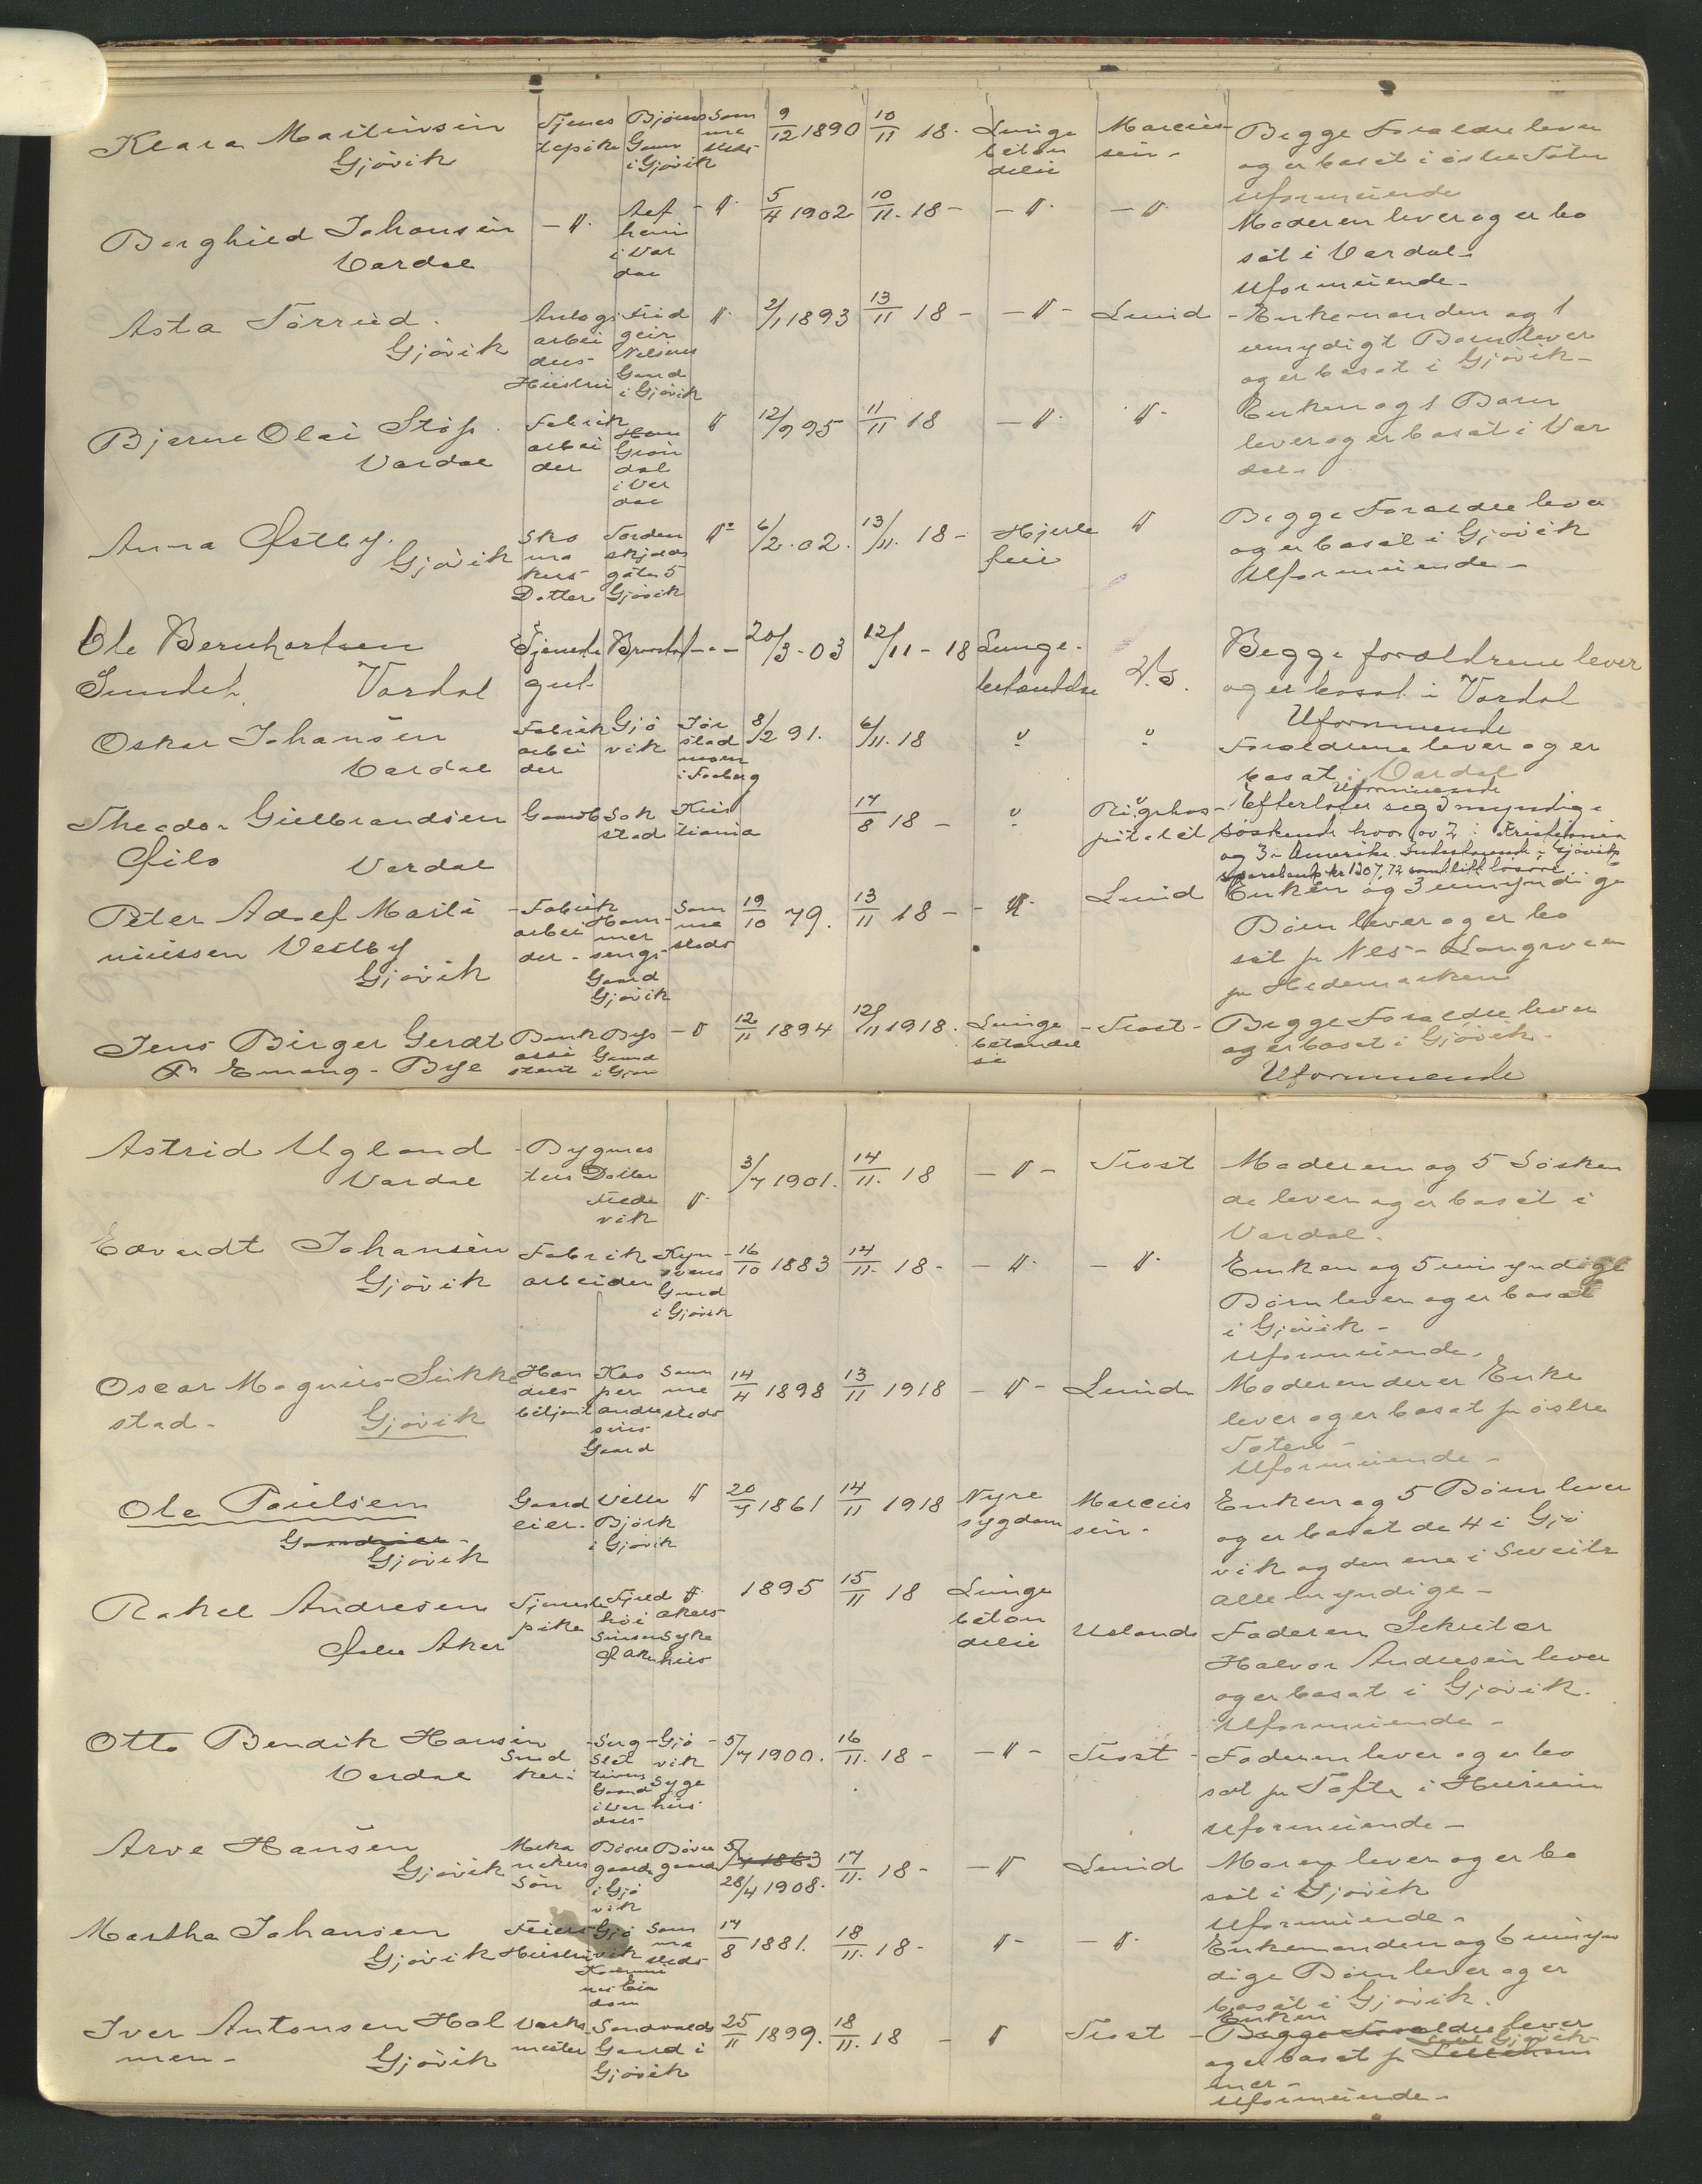 Klara Martinsen
Gjövik
Tjenes
tepike
Björns
Gaar
i Gjövik
Som
me
steds
9/12 1890
10/11 18.
Lunge
beton
delse
Marcus
sen -
Begge Foraeldre lever
og er bosat i östre Toten
Uformuende
Borghild Johansen
Vardal
- " -
heim
i Var
dal
- "
5/4 1902
10/11. 18 -
- " -
- "
Moderen lever og er bo
sat i Vardal -
Uformuende -
Asta Törrud.
Gjövik
arbei
ders
Hustru
Nelsens
Gaard
i Gjövik
"
2/1 1893
13/11 18 -
- " -
Lund
- Enkemanden og 1
umyndigt Barn lever
og er bosat i Gjövik -
Bjarne Olai
Vardal
Fabrik
arbei
der
dal
i Var
dal
"
12/9 95
11/11 18
- " -
" -
Enken og 1 Barn
lever og er bosat i Var
dal -
Anna Østby.
Gjövik
Sko
ma
kers
Datter
Torden
skjolds
gate 5
Gjövik
"
6/2. 02.
13/11. 18 -
Hjerte
feil
"
Begge Foraeldre lever
og er bosat i Gjövik
Uformuende -
Ole Bernhartsen
Sundet. Vardal
Tjeneste
gut
- " -
20/3 - 03
12/11 - 18
Lunge -
betændelse
Begge forældrene lever
og er bosat i Vardal
Uformuende
Oskar Johansen
Vardal
Fabrik
arbei
der
Gjö
vik
Jör
stad
moen
i Faaberg
8/2 91.
6/11. 18
"
"
Foraeldrene lever og er
bosat i Vardal
Uformuende
Theodor Gulbrandsen
Vardal
Gaardb
stad
Kris
tiania
17/8 18 -
"
Rigshos
pitalet
Efterlater seg 5 myndige
söskende hvor av 2 i Kristiania
og 3 i Amerika. Indestaaende i Gjöviks
Sparebank kr 1207,72 samt litt lösöre
Peter Adolf Marti
niussen Vestby
Gjövik
- Fabrik
arbei
der -
Ham
mer
sengs
Gaard
Gjövik
Som
me
steds
19/10 79.
13/11 18 -
- " -
Lund
Enken og 3 umyndige
Börn lever og er bo
sat pr Nes - Langroen
pr Hedemarken
Jens Birger Gerdt
Emang - Bye
Bank
assi
stent
Byes
Gaard
i Gjöv
- "
12/11 1894
12/11 1918.
Lunge
betændel
se
- Trost -
Begge Foraeldre lever
og er bosat i Gjövik.
Uformuende
Astrid Ugland
Vardal
- Bygmes
ters Datter
Frede
vik
"
3/7 1901.
14/11. 18
- " -
Trost
Moderen og 5 Sösken
de lever og er bosat i
Vardal.
Edvardt Johansen
Gjövik
Fabrik
arbeider
Gaard
i Gjövik
16/10 1883
14/11. 18 -
- " -
- "
Enken og 5 umyndige
Börn lever og er bosat
i Gjövik -
Uformuende.
Oscar Magnus Sukke
stad -
Gjövik
Han
dels
betjent
Kas
per
Andre
sens
Gaard
Som
me
steds
14/4 1898
13/11 1918
- " -
Lund
Moderen der er Enke
lever og er bosat pr östre
Toten -
Uformuende -
Ole Paulsen
Gaardeier -
Gjövik
Gaard
eier.
Villa
Björk
i Gjövik
"
1861
14/11 1918
Nyre
sygdom
Marcus
sen -
Enken og 5 Börn lever
og er bosat de 4 i Gjö
vik og den ene i Sveits
alle myndige -
Rakel Andresen
Aker
Tjeneste
pike
"
Akers
Syke
hus
1895
15/11 18
Lunge
beton
delse
Utlands
Faderen Sekretær
Halvor Andresen lever
og er bosat i Gjövik.
Uformuende -
Otto Bendik Hansen
Vardal
Sned
ker.
Gaard
i Var
dal
- Gjö -
vik
Syge
hus
5/7 1900.
16/11. 18 -
- " -
Trost -
Faderen lever og er bo
sat pr Tofte i Hurum
Uformuende -
Arve Hansen
Gjövik
Meka
nikers
Sön
gaard
i Gjö
vik
gaard
28/4 1908.
17/11. 18 -
- "
Lund
Moren lever og er bo
sat i Gjövik
Uformuende -
Martha Johansen
Gjövik
Feiers
Hustru
Gjö
vik
Kommu
nes Eien
dom
Som
me
steds
17/8 1881.
18/11. 18 -
" -
- "
Enkemanden og 6 umyn
dige Börn lever og er
bosat i Gjövik.
Iver Antonsen Hol
men -
Gjövik
Verks
mester
Sandvolds
Gaard i
Gjövik
25/11 1899.
18/11. 18
- "
Trost -
Enken
Begge Foraeldre lever
og er bosat pr
Uformuende -